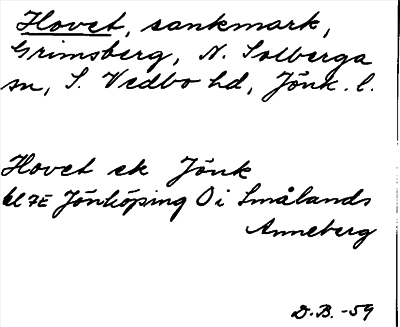 Hovet, sankmark,
Grimsberg, N. Solberga
sn, S. Vedbo hd, Jönk. l.
Hovet ek Jönk
bl 7E Jönköping O i Smålands
Anneberg
D.B. -59